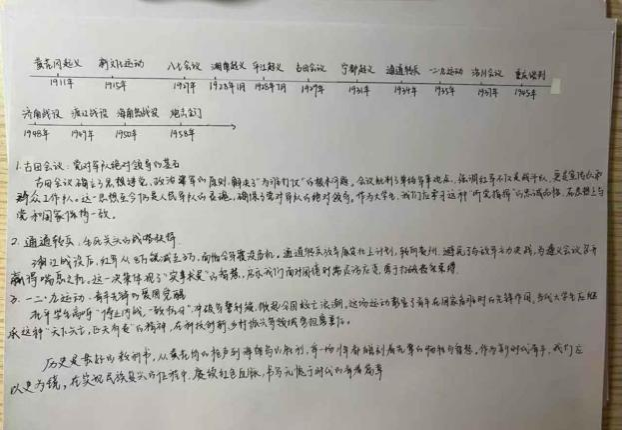 黄花岗起义 新文化运动 八七会议 湘南起义 平江起义 古田会议 宁都起义 通道转兵 一二九运动 洛川会议 重庆谈判
1911年 1915年 1927年 1928年1月 1928年7月 1929年 1931年 1934年 1935年 1937年 1945年
济南战役 渡江战役 海南岛战役 炮击金门
1948年 1949年 1950年 1958年
1.古田会议：党对军队绝对领导的基石
古田会议确立了思想建党、政治建军的原则，解决了"为谁打仗"的根本问题。会议批判了单纯军事观点，强调红军不仅是战斗队，更是宣传队和
群众工作队。这一思想至今仍是人民军队的 确保了党对军队的绝对领导。作为大学生，我们应学习这种"听党指挥"的忠诚 在思想上与
党和国家保持一致。
2.通道转兵：生死关头的战略抉择
湘江战役后，红军从8万锐减至3万，面临全军覆没危机。通道转兵放弃原定北上计划，转向贵州，避免了与敌军主力决战，为遵义会议召开
赢得喘息之机。这一决策体现了"实事求是"的智慧，启示我们面对困境时需灵活应变，勇于打破
3.一二·九运动：青年先锋的爱国觉醒
北平学生高呼"停止内战，一致抗日"，冲破军警封锁，掀起全国救亡浪潮。这场运动彰显了青年在国家危难时的先锋作用，当代大学生应继
承这种"天下兴亡，匹夫有责"的精神，在科技创新、乡村振兴等领域勇担重任。
历史是最好的教科书，从黄花岗的枪声到 的胜利，每一场 都镌刻着先辈的牺牲与智慧，作为新时代青年，我们应
以史为镜，在实现民族复兴的征程中，赓续红色血脉，书写无愧于时代的青春篇章